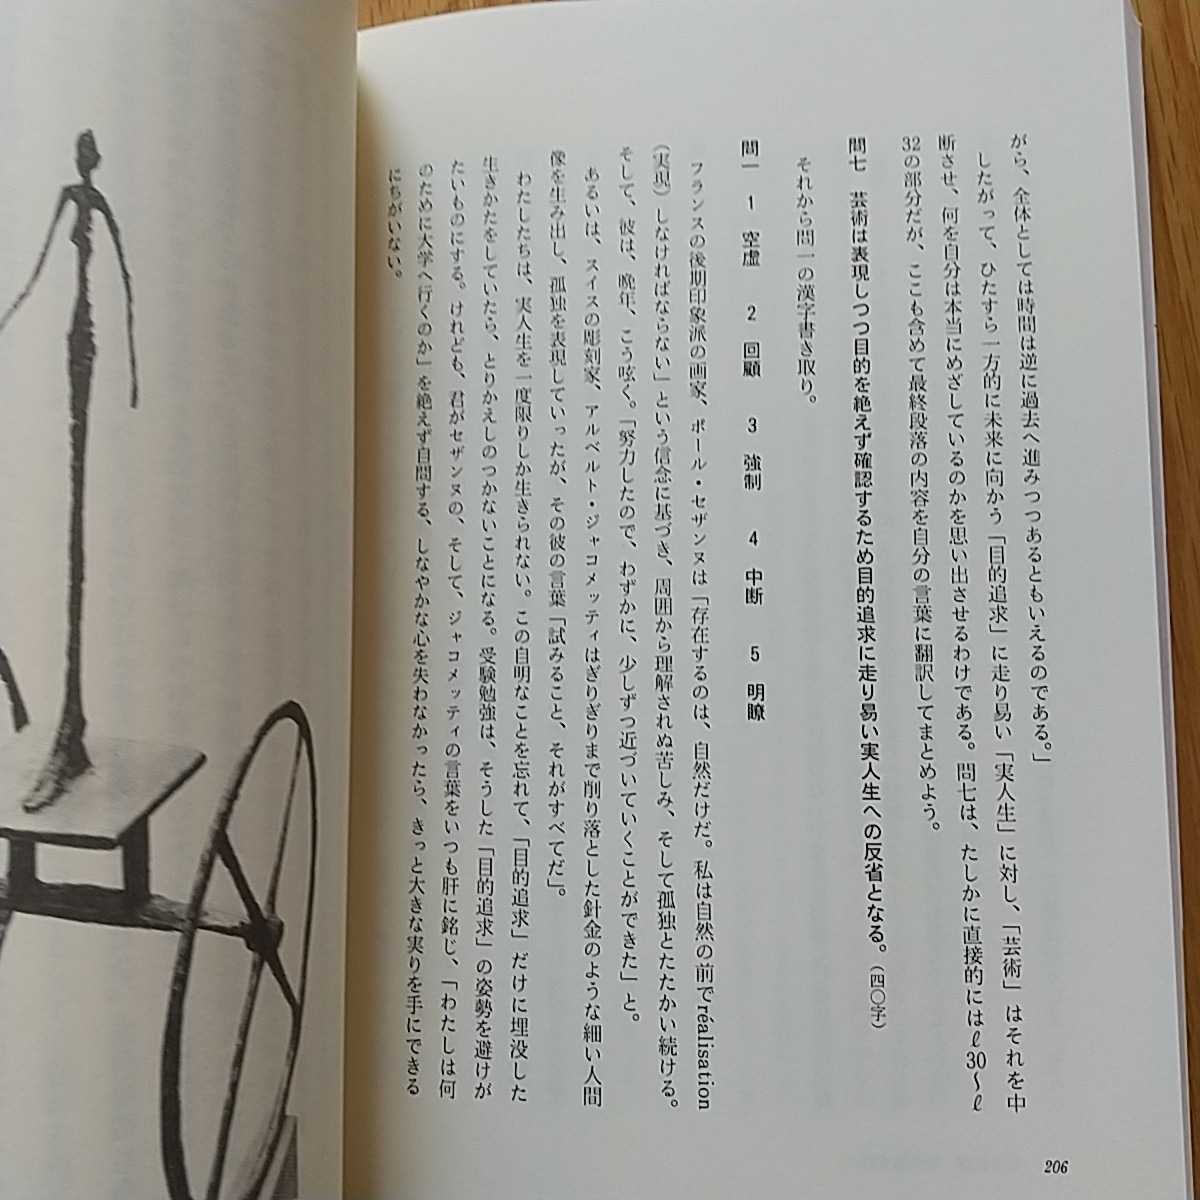 がら、全体としては時間は逆に過去へ進みつつあるともいえるのである。」
したがって、ひたすら一方的に未来に向かう「目的追求」に走り易い「実人生」に対し、「芸術」はそれを中
断させ、何を自分は本当にめざしているのかを思い出させるわけである。問七は、たしかに直接的にはℓ30〜ℓ
32の部分だが、ここも含めて最終段落の内容を自分の言葉に翻訳してまとめよう。
問七 芸術は表現しつつ目的を絶えず確認するため目的追求に走り易い実人生への反省となる。(四〇字)
それから問一の漢字書き取り。
問一 1 空虚 2 回顧 3 強制 4 中断 5 明瞭
フランスの後期印象派の画家、ポール・セザンヌは「存在するのは、自然だけだ。私は自然の前でréalisation
(実現)しなければならない」という信念に基づき、周囲から理解されぬ苦しみ、そして孤独とたたかい続ける。
そして、彼は、晩年、こう呟く。「努力したので、わずかに、少しずつ近づいていくことができた」と。
あるいは、スイスの彫刻家、アルベルト・ジャコメッティはぎりぎりまで削り落とした針金のような細い人間
像を生み出し、孤独を表現していったが、その彼の言葉「試みること、それがすべてだ」。
わたしたちは、実人生を一度限りしか生きられない。この自明なことを忘れて、「目的追求」だけに埋没した
生きかたをしていたら、とりかえしのつかないことになる。受験勉強は、そうした「目的追求」の姿勢を避けが
たいものにする。けれども、君がセザンヌの、そして、ジャコメッティの言葉をいつも肝に銘じ、「わたしは何
のために大学へ行くのか」を絶えず自問する、しなやかな心を失わなかったら、きっと大きな実りを手にできる
にちがいない。
206